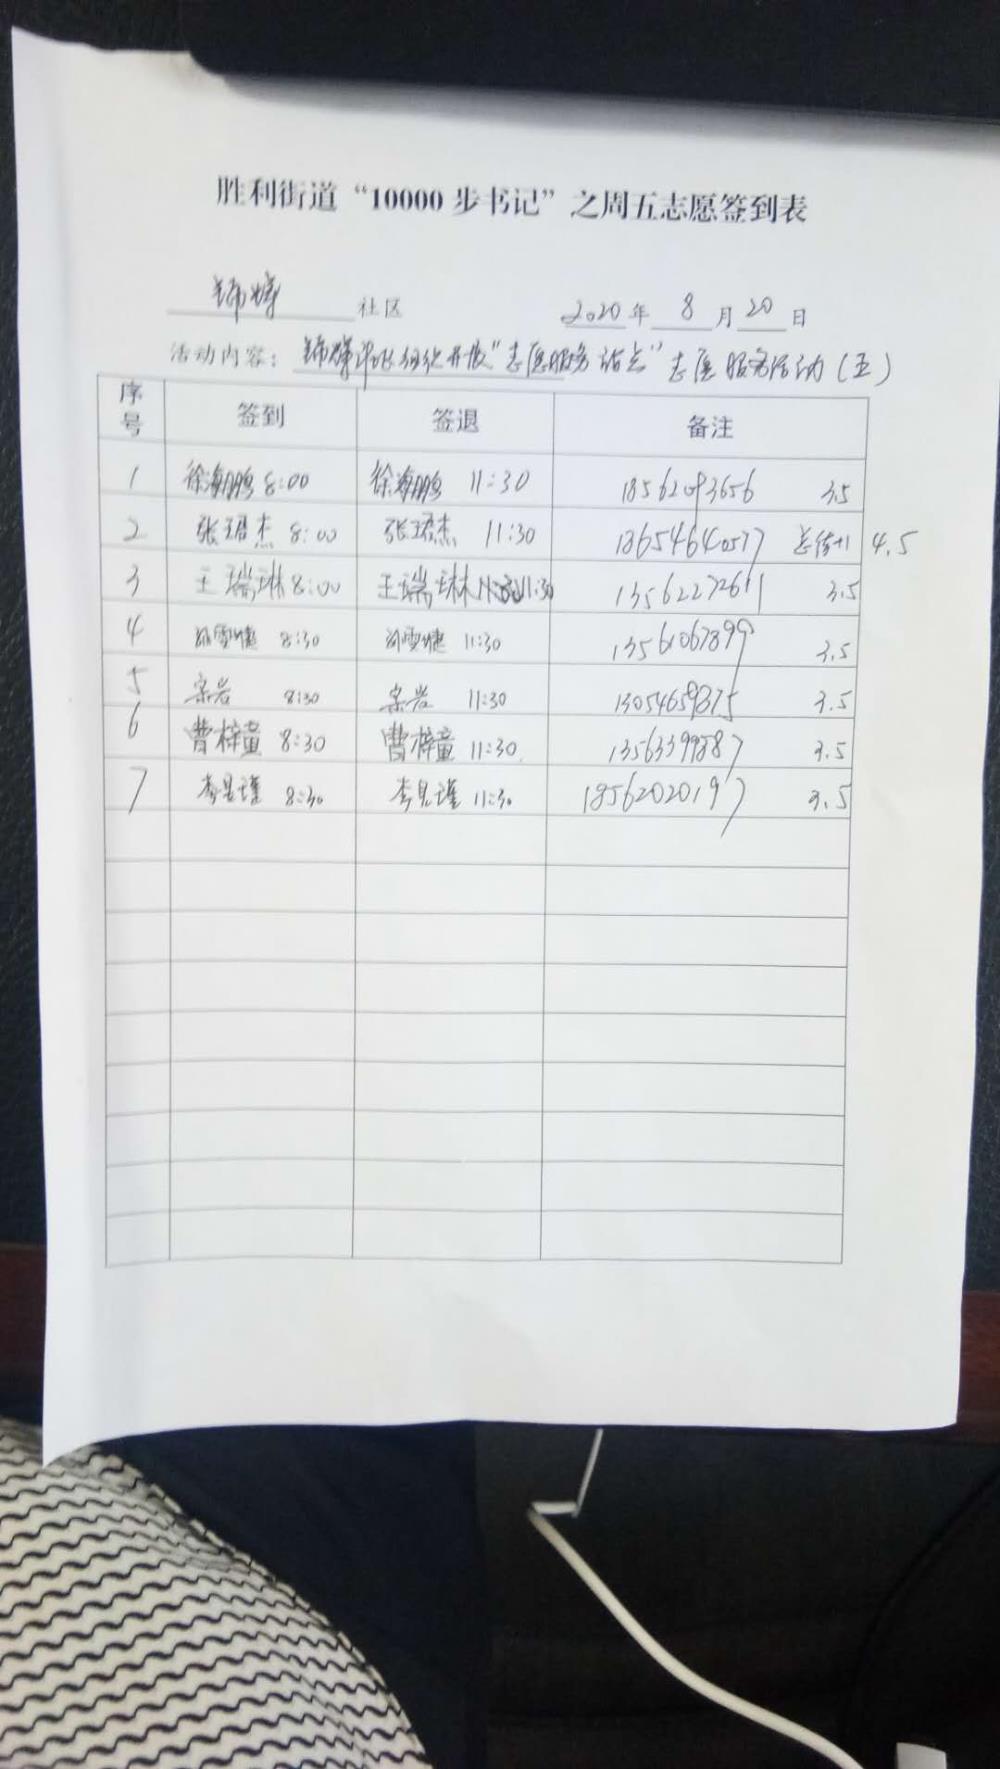 胜利街道“10000步书记”之周五志愿签到表
锦辉 社区 2020年 8 月 20 日
活动内容： 锦辉社区组织开展“志愿服务站点”志愿服务活动（五）
序号 签到 签退 备注
1 徐海鹏 8:00 徐海鹏 11:30 3.5
2 张珺杰 8:00 张珺杰 11:30 18654640577 总结+1 4.5
3 王瑞琳 8:00 王瑞琳 11:30 13562272611 3.5
4 8:30 11:30 13561067899 3.5
5 宗岩 8:30 宗岩 11:30 13054659875 3.5
6 曹梓童 8:30 曹梓童 11:30 13563399887 3.5
7 李昱瑾 8:30 李昱瑾 11:30 18562020197 3.5